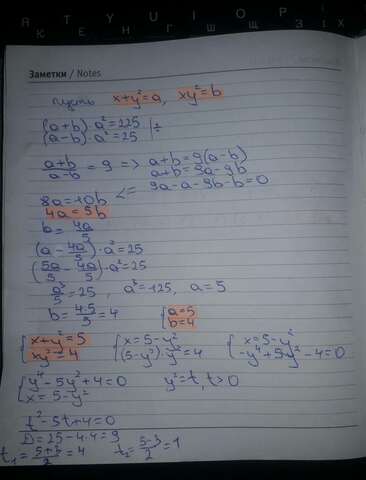 A T Y U I O P [
К Е Н Г Ш Щ З Х
Заметки / Notes
Пусть x+y²=a, xy²=b
{(a+b)·a²=225 | ÷
(a-b)·a²=25
(a+b)/(a-b) = 9 => a+b=9(a-b)
a+b=9a-9b
8a=10b <= 9a-a-9b-b=0
4a=5b
b=4a/5
(a-4a/5)·a²=25
(5a/5-4a/5)·a²=25
a³/5=25, a³=125, a=5
b=4·5/5=4 {a=5
b=4
{x+y²=5 {x=5-y² {x=5-y²
xy²=4 (5-y²)·y²=4 -y⁴+5y²-4=0
{y⁴-5y²+4=0 y²=t, t>0
x=5-y²
t²-5t+4=0
D=25-4·4=9
t₁=(5+3)/2=4 t₂=(5-3)/2=1